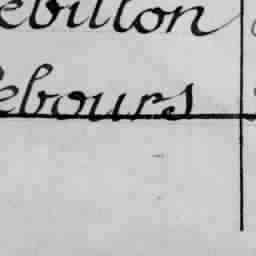 ebillon
ebours